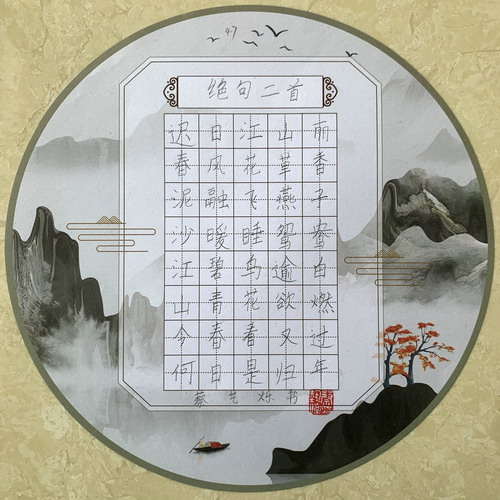 47
绝句二首
迟日江山丽
春风花草香
泥融飞燕子
沙暖睡鸳鸯
江碧鸟逾白
山青花欲燃
今春看又过
何日是归年
蔡艺烁书